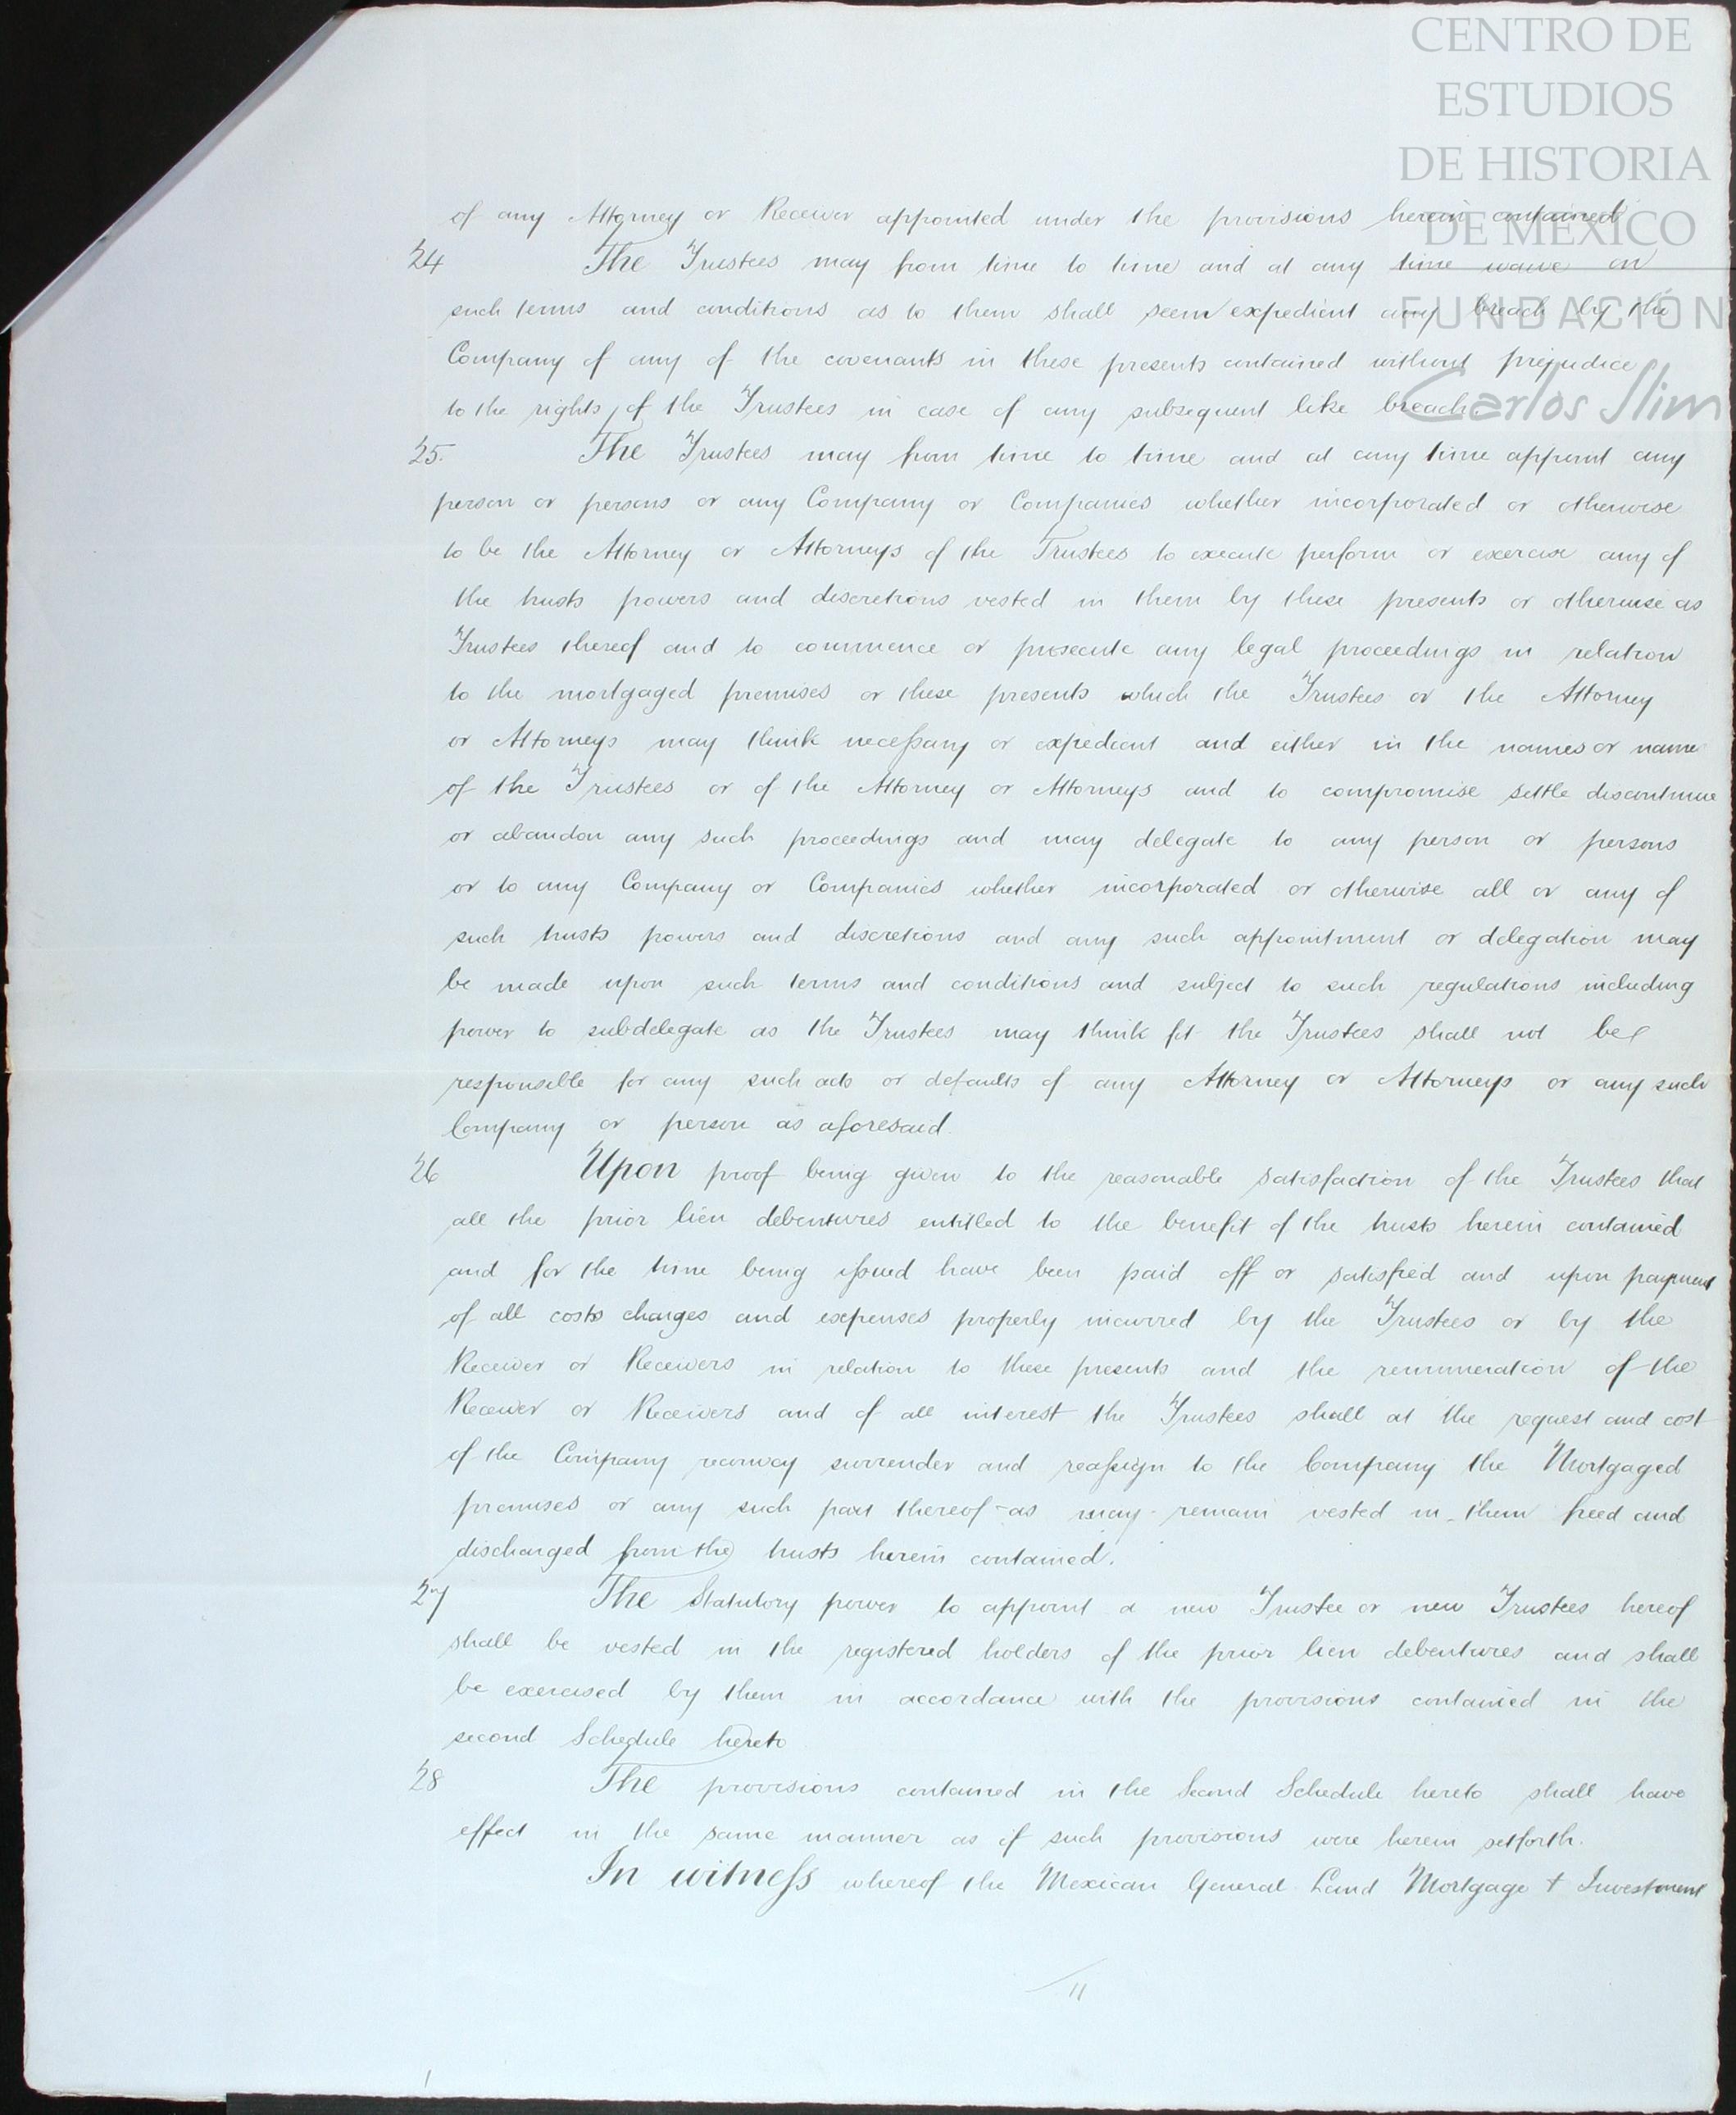 CENTRO DE
ESTUDIOS
DE HISTORIA
DE MÉXICO
FUNDACIÓN
Carlos Slim
of any Attorney or Receiver appointed under the provisions herein contained
24 The Trustees may from time to time and at any time waive on
such terms and conditions as to them shall seem expedient any breach by the
Company of any of the covenants in these presents contained without prejudice
to the rights of the Trustees in case of any subsequent like breach
25. The Trustees may from time to time and at any time appoint any
person or persons or any Company or Companies whether incorporated or otherwise
to be the Attorney or Attorneys of the Trustees to execute perform or exercise any of
the trusts powers and discretions vested in them by these presents or otherwise as
Trustees thereof and to commence or prosecute any legal proceedings in relation
to the mortgaged premises or these presents which the Trustees or the Attorney
or Attorneys may think necessary or expedient and either in the names or name
of the Trustees or of the Attorney or Attorneys and to compromise settle discontinue
or abandon any such proceedings and may delegate to any person or persons
or to any Company or Companies whether incorporated or otherwise all or any of
such trusts powers and discretions and any such appointment or delegation may
be made upon such terms and conditions and subject to such regulations including
power to subdelegate as the Trustees may think fit the Trustees shall not be
responsible for any such acts or defaults of any Attorney or Attorneys or any such
Company or person as aforesaid.
26 Upon proof being given to the reasonable satisfaction of the Trustees that
all the prior lien debentures entitled to the benefit of the trusts herein contained
and for the time being issued have been paid off or satisfied and upon payment
of all costs charges and expenses properly incurred by the Trustees or by the
Receiver or Receivers in relation to these presents and the remuneration of the
Receiver or Receivers and of all interest the Trustees shall at the request and cost
of the Company reconvey surrender and reassign to the Company the Mortgaged
premises or any such part thereof as may remain vested in them freed and
discharged from the trusts herein contained.
27 The Statutory power to appoint a new Trustee or new Trustees hereof
shall be vested in the registered holders of the prior lien debentures and shall
be exercised by them in accordance with the provisions contained in the
second Schedule hereto
28 The provisions contained in the Second Schedule hereto shall have
effect in the same manner as if such provisions were herein setforth.
In witness whereof the Mexican General Land Mortgage & Investment
11